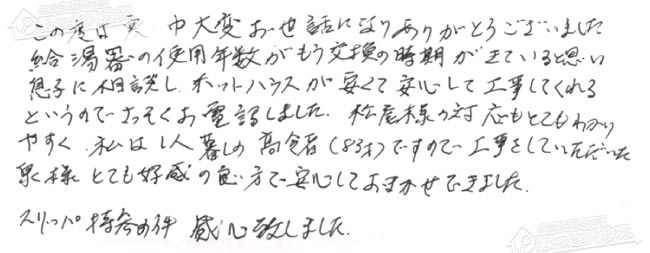 この度は 中大変お世話になりありがとうございました
給湯器の使用年数がもう交換の時期がきていると思い
息子に相談し、ホットハウスが安くて安心して工事してくれる
というのでさっそくお電話しました。松尾様の対応もとてもわかり
やすく、私は1人暮しの高令者(83才)ですので工事をしていただいた
泉様とても好感の良い方で安心しておまかせできました。
スリッパ持参の件 感心致しました。